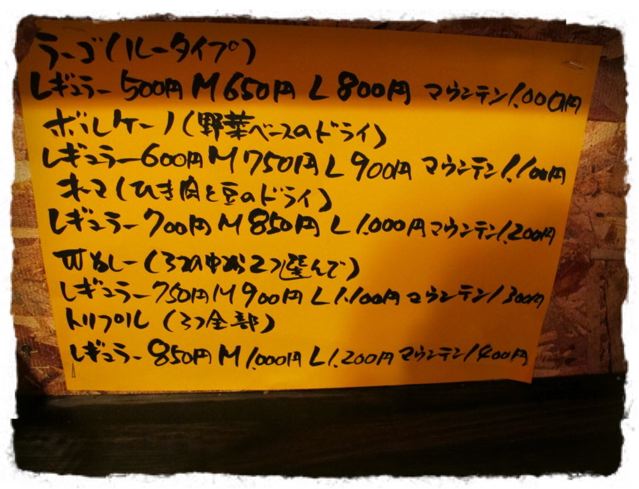 ラーゴ(ルータイプ)
レギュラー500円 M650円 L800円 マウンテン1.000円
ボルケーノ(野菜ベースのドライ)
レギュラー600円 M750円 L900円 マウンテン1.100円
(ひき肉と豆のドライ)
レギュラー700円 M850円 L1.000円 マウンテン1.200円
(3つの中から2つ選んで)
レギュラー750円 M900円 L1.100円 マウンテン1300円
トリプル(3つ全部)
レギュラー850円 M1.000円 L1.200円 マウンテン1400円